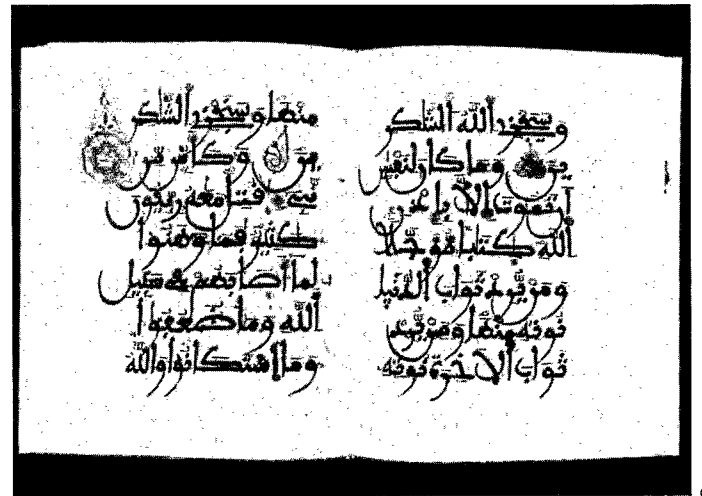 وسيجزي الله الشكر
ين وما كان لنفس
أن تموت إلا بإذن
الله كتابا مؤجلا
ومن يرد ثواب الدنيا
نوته منها ومن يرد
ثواب الآخرة نوته
منها وسنجزي الشكر
ين وكأين من
نبي قتل معه ربيون
كثير فما وهنوا
لما أصابهم في سبيل
الله وما ضعفوا
وما استكانوا والله